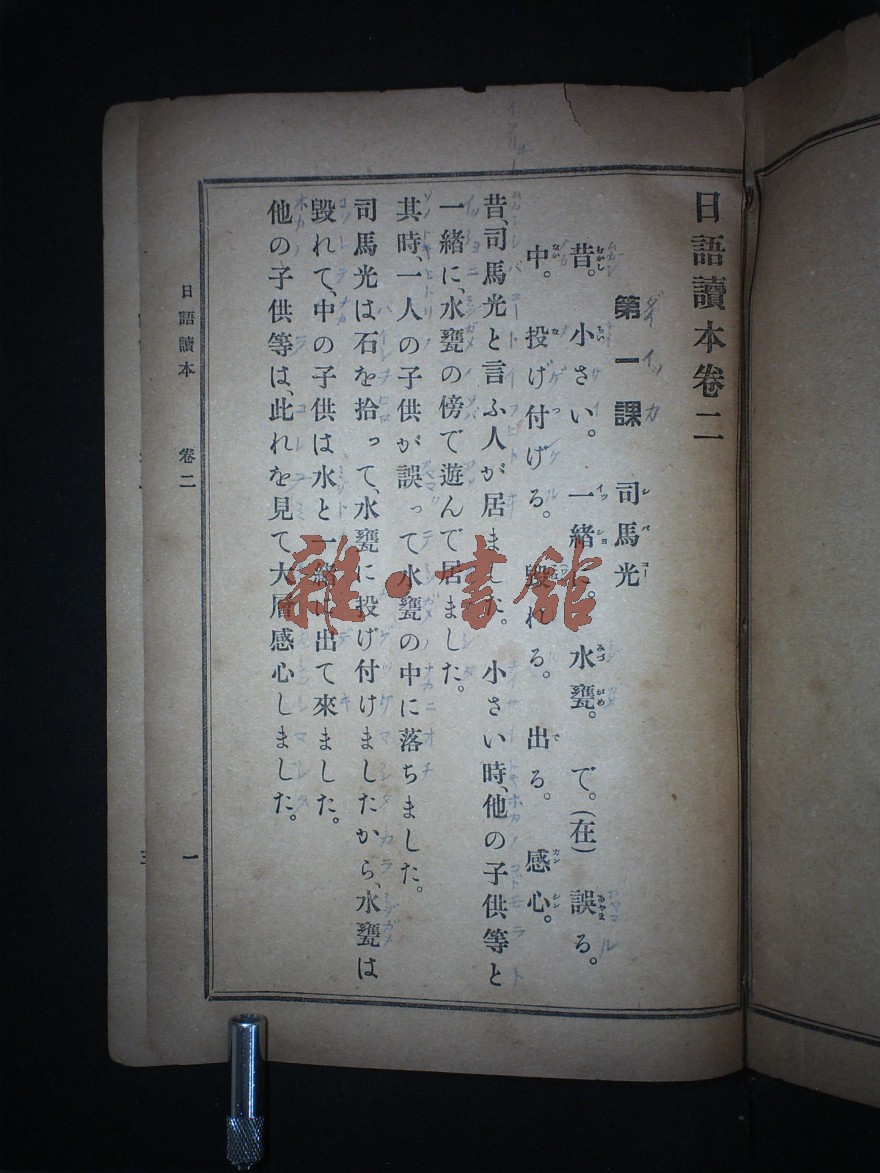 日語讀本卷二
第一課 司馬光
昔。 小さい。 一緒に。 水甕。 で。(在) 誤る。
中。 投げ付ける。 毀れる。 出る。 感心。
昔、司馬光と言ふ人が居ました。 小さい時、他の子供等と
一緒に、水甕の傍で遊んで居ました。
其時、一人の子供が誤って水甕の中に落ちました。
司馬光は石を拾って、水甕に投げ付けましたから、水甕は
毀れて、中の子供は水と一緒に出て來ました。
他の子供等は、此れを見て大層感心しました。
日語讀本 卷二 一
雜·書館